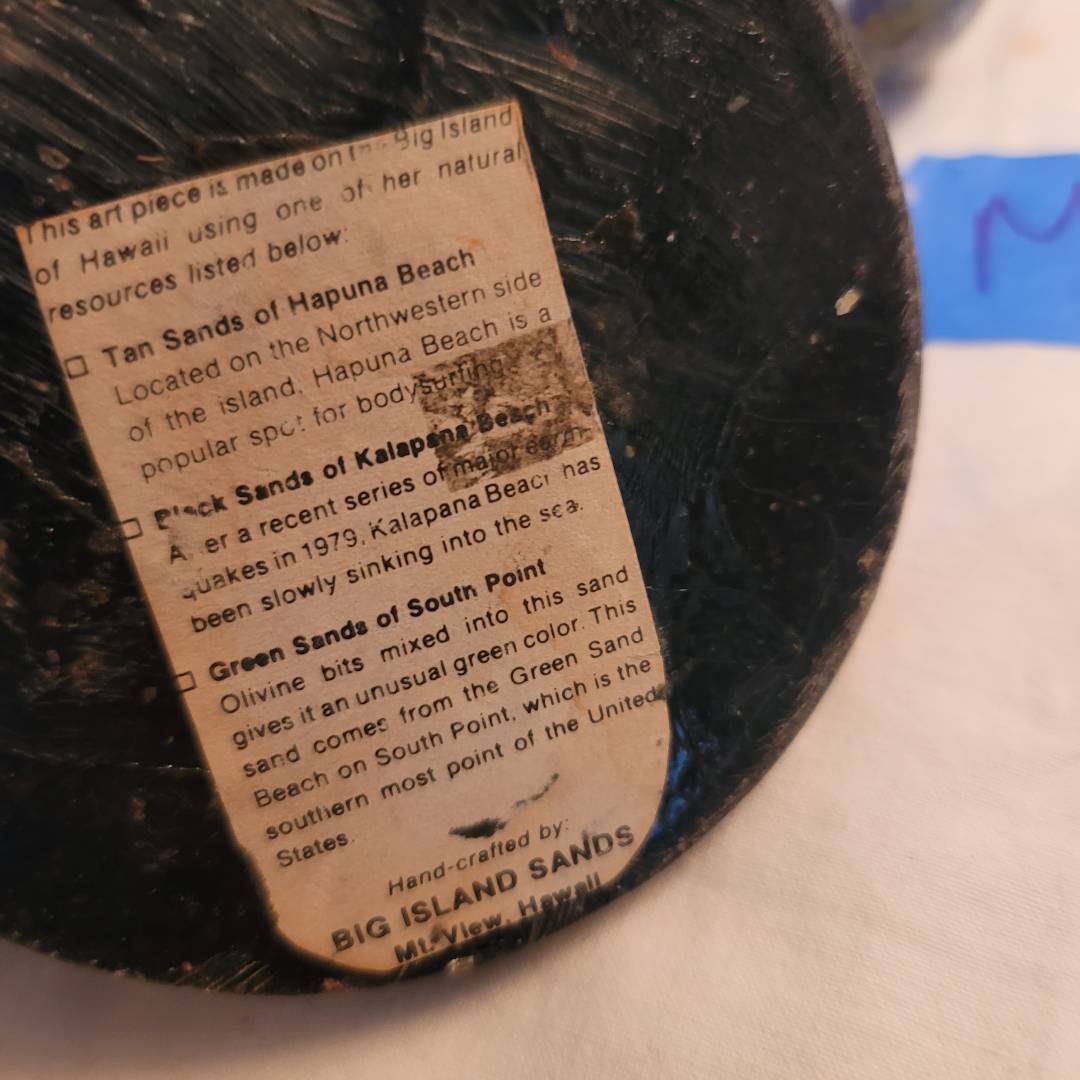 This art piece is made on the Big Island
of Hawaii using one of her natural
resources listed below:
Tan Sands of Hapuna Beach
Located on the Northwestern side
of the island, Hapuna Beach is a
popular spot for bodysurfing
Black Sands of Kalapana Beach
After a recent series of major earth-
quakes in 1979, Kalapana Beach has
been slowly sinking into the sea.
Green Sands of South Point
Olivine bits mixed into this sand
gives it an unusual green color. This
sand comes from the Green Sand
Beach on South Point, which is the
southern most point of the United
States.
Hand-crafted by:
BIG ISLAND SANDS
Mt. View, Hawaii